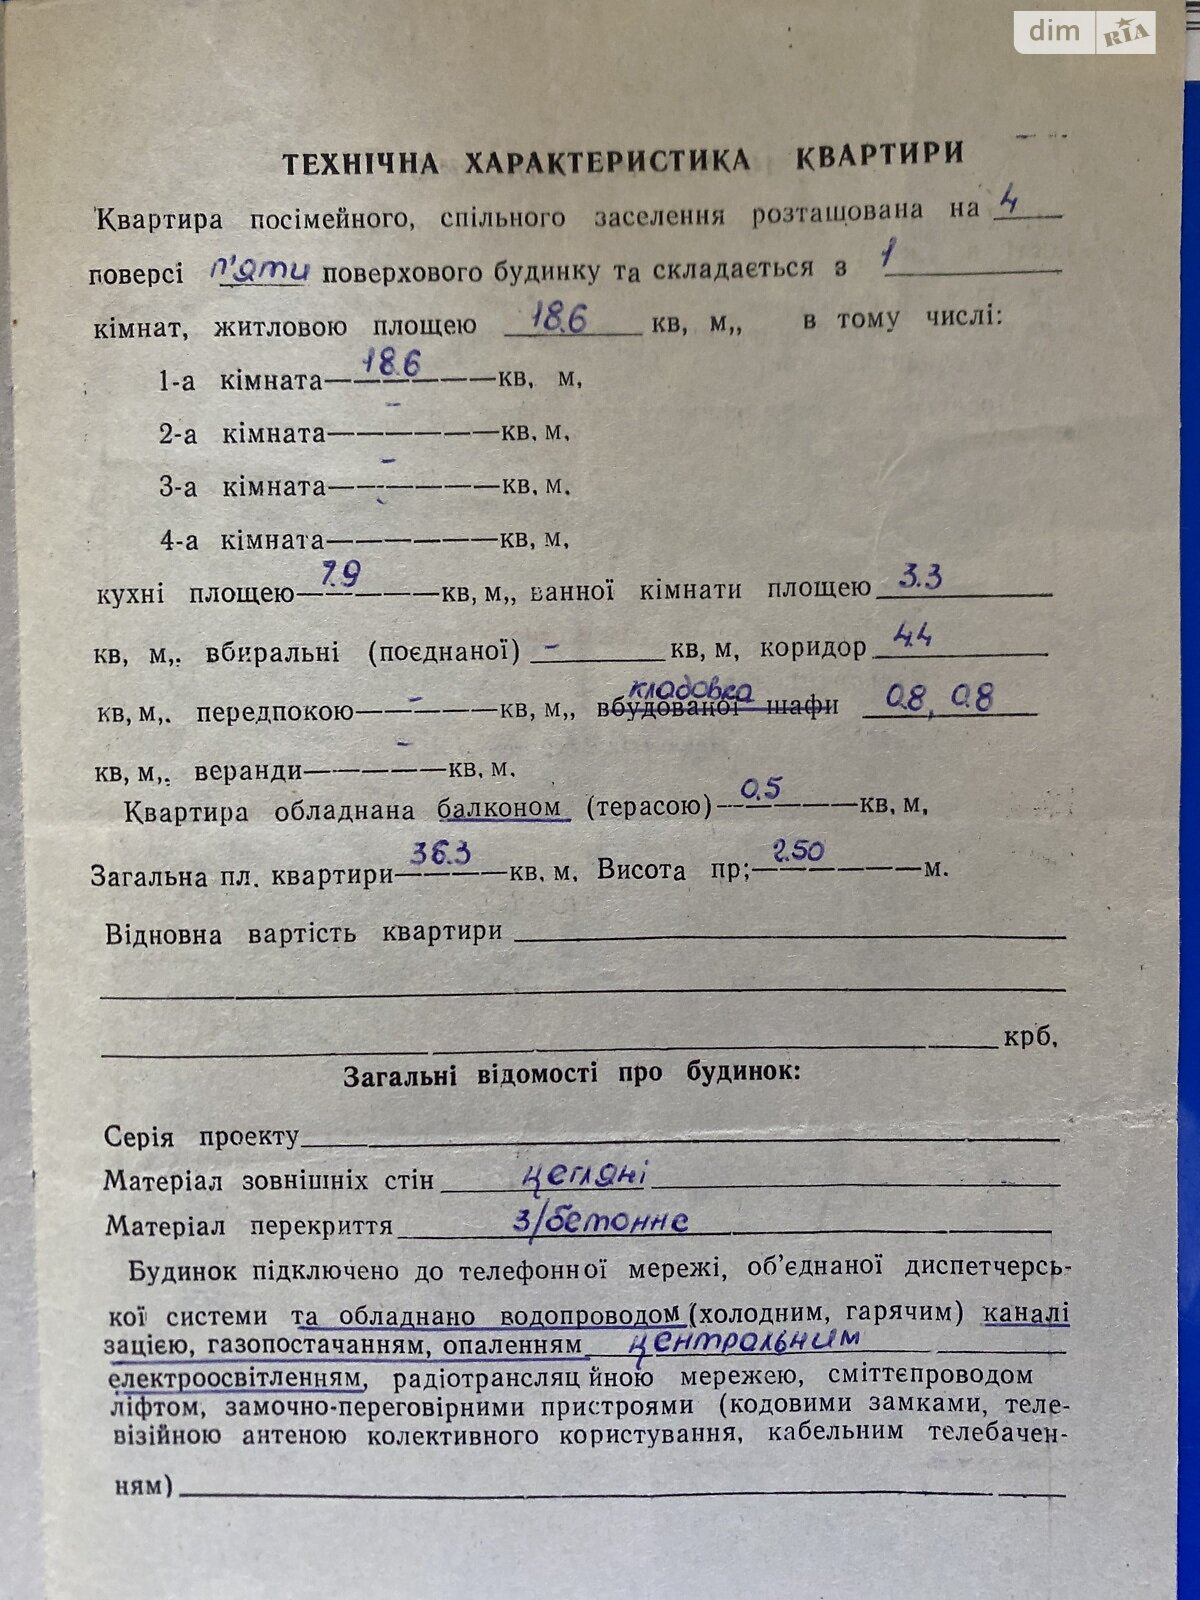 dim RIA
ТЕХНІЧНА ХАРАКТЕРИСТИКА КВАРТИРИ
Квартира посімейного, спільного заселення розташована на 4
поверсі п'яти поверхового будинку та складається з 1
кімнат, житловою площею 18.6 кв, м,, в тому числі:
1-а кімната 18.6 кв, м,
2-а кімната - кв. м,
3-а кімната - кв. м.
4-а кімната кв, м,
кухні площею 7.9 кв, м,, ванної кімнати площею 3.3
кв, м,. вбиральні (поєднаної) - кв, м, коридор 4.4
кладовка
кв, м,. передпокою - кв, м,, вбудованої шафи 0.8, 0.8
кв, м,. веранди - кв. м.
Квартира обладнана балконом (терасою) 0.5 кв, м,
Загальна пл. квартири 36.3 кв. м, Висота пр; 2.50 м.
Відновна вартість квартири
крб,
Загальні відомості про будинок:
Серія проекту
Матеріал зовнішніх стін цегляні
Матеріал перекриття з/бетонне
Будинок підключено до телефонної мережі, об'єднаної диспетчерсь-
кої системи та обладнано водопроводом (холодним, гарячим) каналі
зацією, газопостачанням, опаленням центральним
електроосвітленням, радіотрансляц йною мережею, сміттєпроводом
ліфтом, замочно-переговірними пристроями (кодовими замками, теле-
візійною антеною колективного користування, кабельним телебачен-
ням)